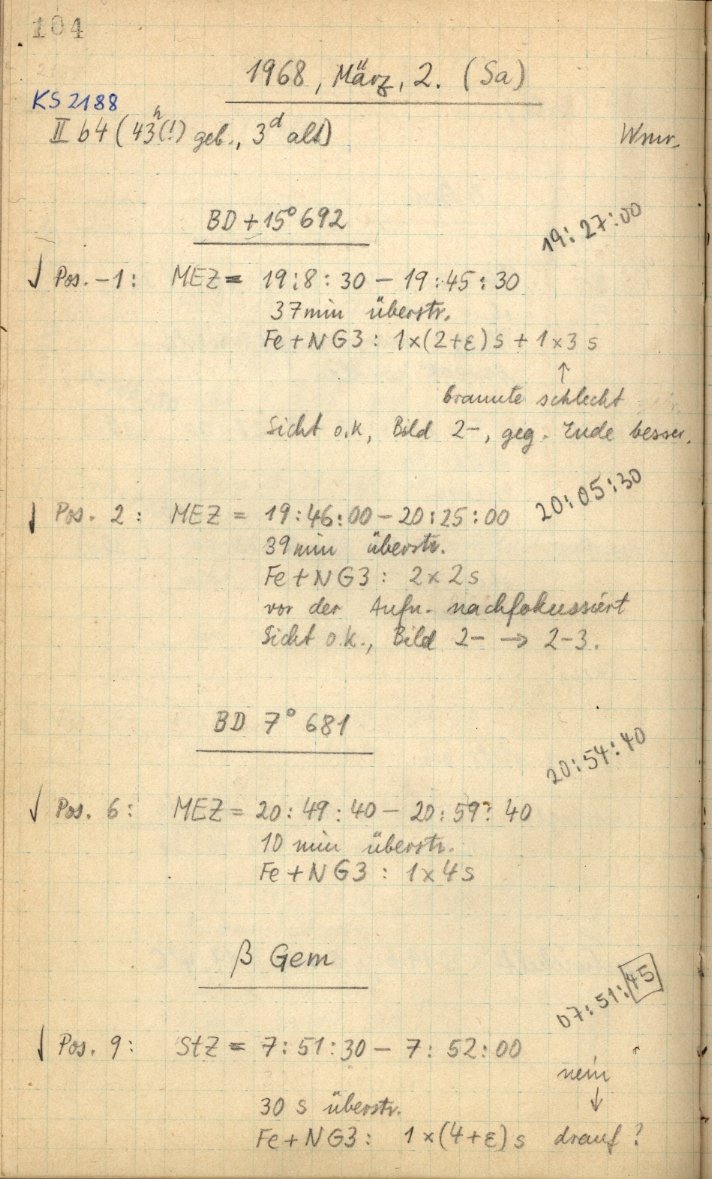 104
1968, März, 2. (Sa)
KS 2188
II b4 (43h(!) geb., 3d alt) Wmr.
BD + 15° 692
19:27:00
√ Pos. -1: MEZ = 19:8:30 - 19:45:30
37min überstr.
Fe+NG3: 1x(2+ε)s + 1x3 s
↑
brannte schlecht
Sicht o.k, Bild 2-, geg. Ende besser.
20:05:30
√ Pos. 2: MEZ = 19:46:00 - 20:25:00
39min überstr.
Fe+NG3: 2x2s
vor der Aufn. nachfokussiert
Sicht o.k., Bild 2- → 2-3.
BD 7° 681
20:54:40
√ Pos. 6: MEZ = 20:49:40 - 20:59:40
10 min überstr.
Fe+NG3: 1x4s
β Gem
07:51:45
√ Pos. 9: StZ = 7:51:30 - 7:52:00
nein
↓
30 s überstr.
Fe+NG3: 1x(4+ε)s drauf?